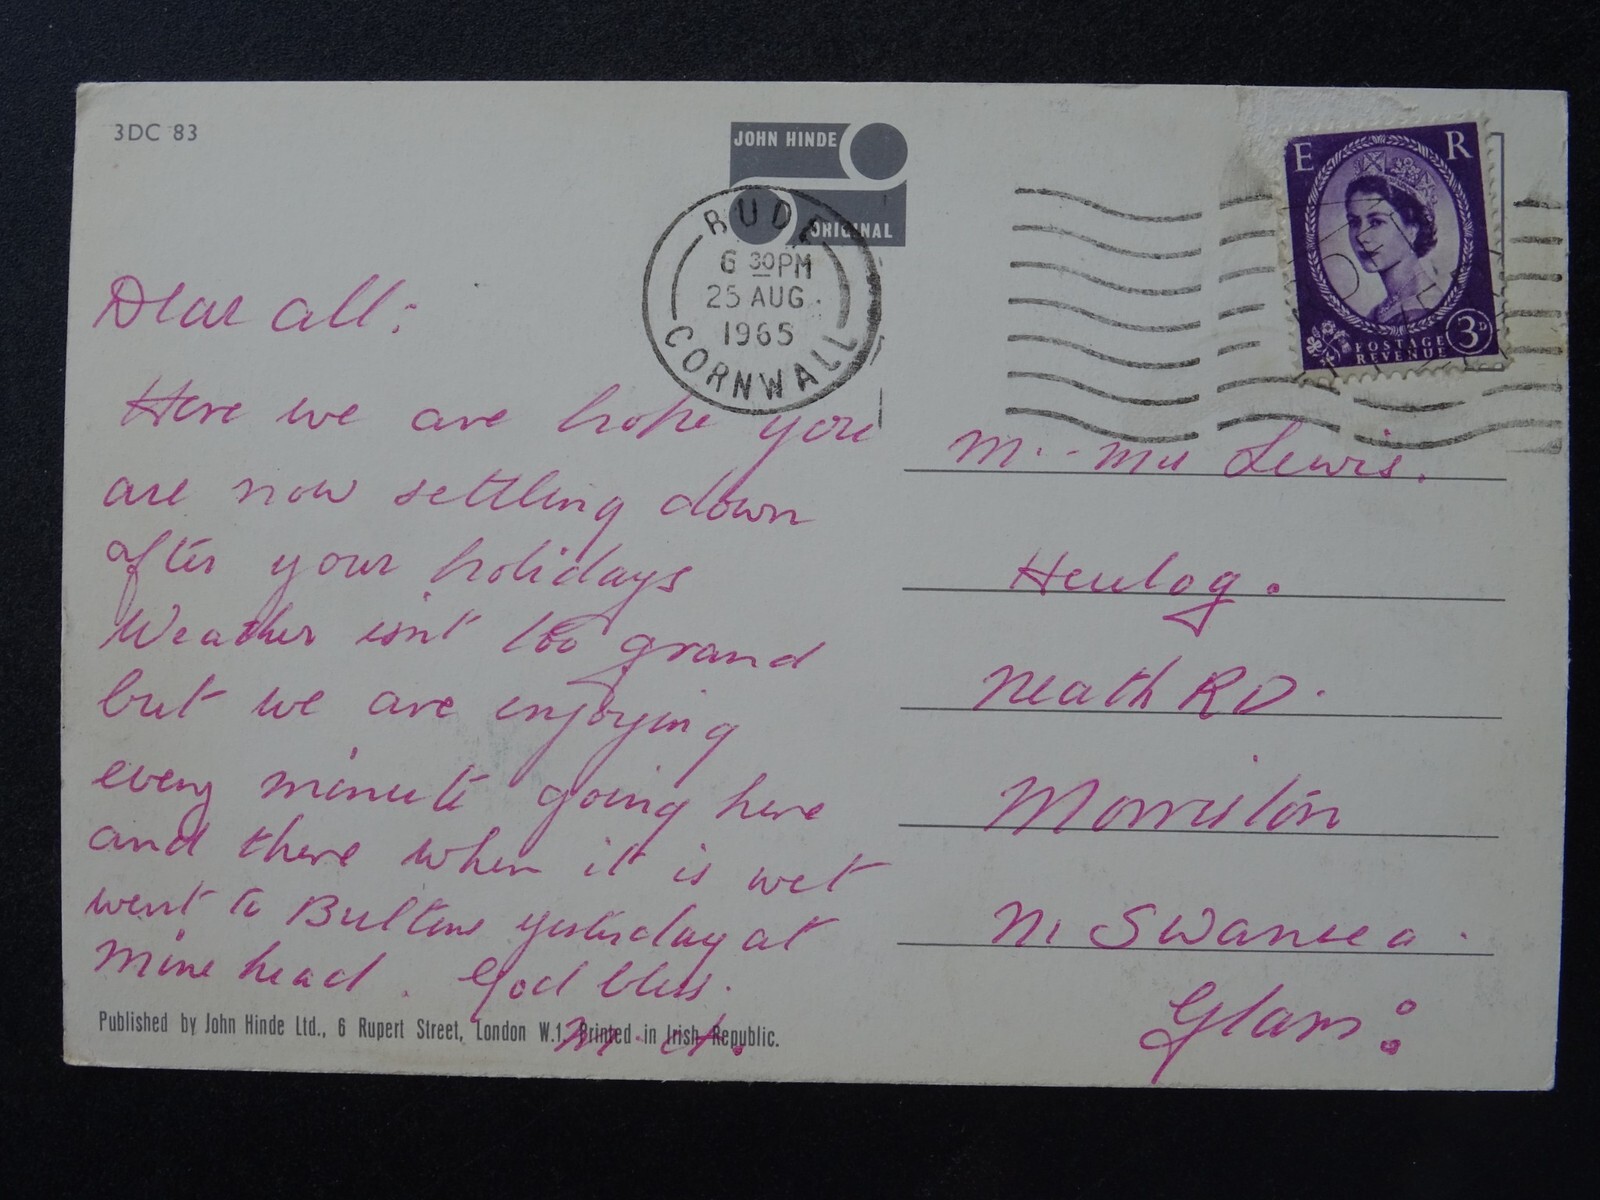 3DC 83
JOHN HINDE
ORIGINAL
BUDE
6 30PM
25 AUG.
1965
CORNWALL
E R
POSTAGE
REVENUE
3D
Dear all:
Here we are hope you
are now settling down
after your holidays
Weather isn't too grand
but we are enjoying
every minute going here
and there when it is wet
went to Butlins yesterday at
Minehead. God bless.
Published by John Hinde Ltd., 6 Rupert Street, London W.1. Printed in Irish Republic.
M. Lewis.
Heulog.
Neath RD.
Morriston
Swansea.
Glam: